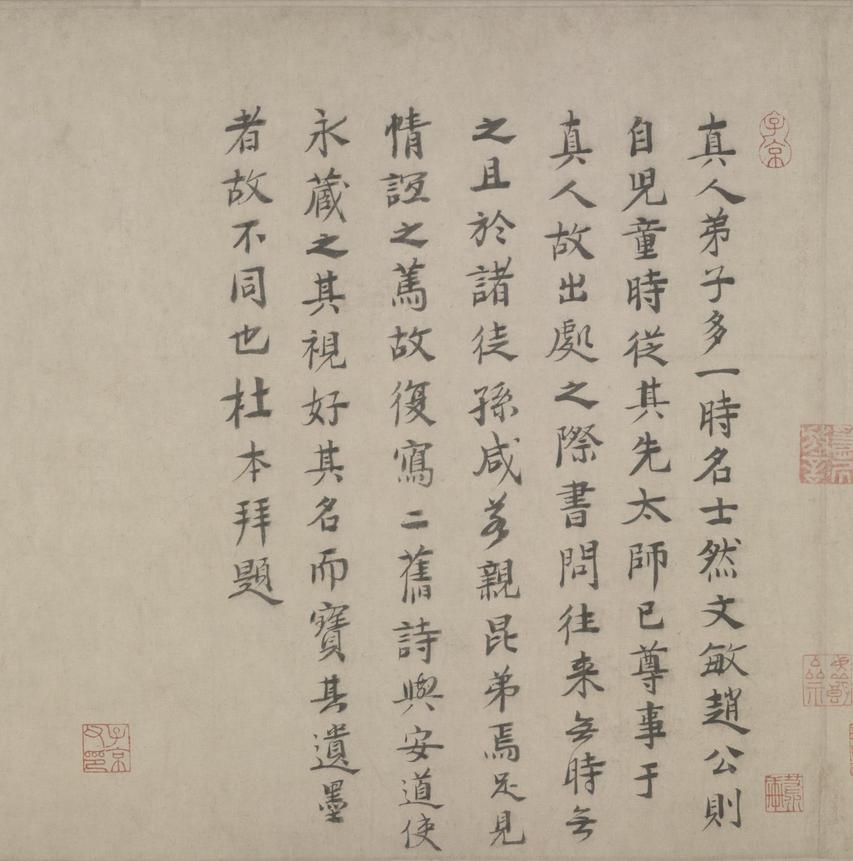 真人弟子多一時名士然文敏趙公則
自児童時從其先太師已尊事于
真人故出處之際書問往来无時无
之且於諸徒孫咸若親昆弟焉足見
情誼之篤故復寫二舊詩與安道使
永藏之其視好其名而寶其遺墨
者故不同也杜本拜題
子京